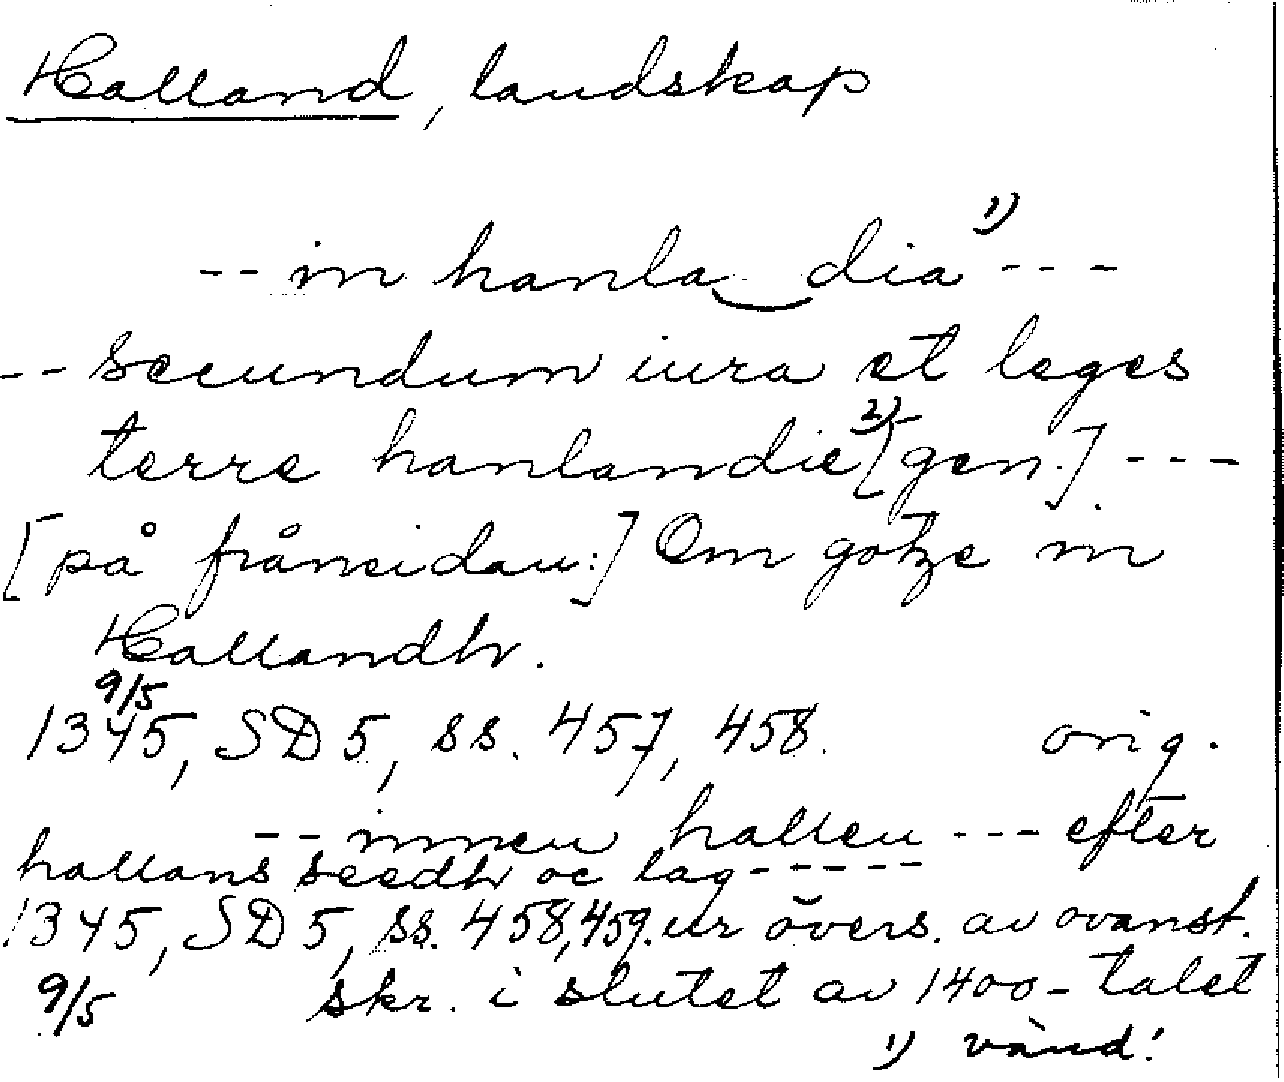 Halland, landskap
-- in hanla dia 1) ---
-- secundum iura et leges
terre hanlandie 2) [gen.] ---
[på frånsidan:] Om gotze in
Hallandh.
9/5
1345, SD 5, ss. 457, 458. orig.
-- innen hallen --- efter
hallans seedh oc lag -----
1345, SD 5, ss. 458, 459. ur övers. av ovanst.
9/5 skr. i slutet av 1400-talet
1) vänd!